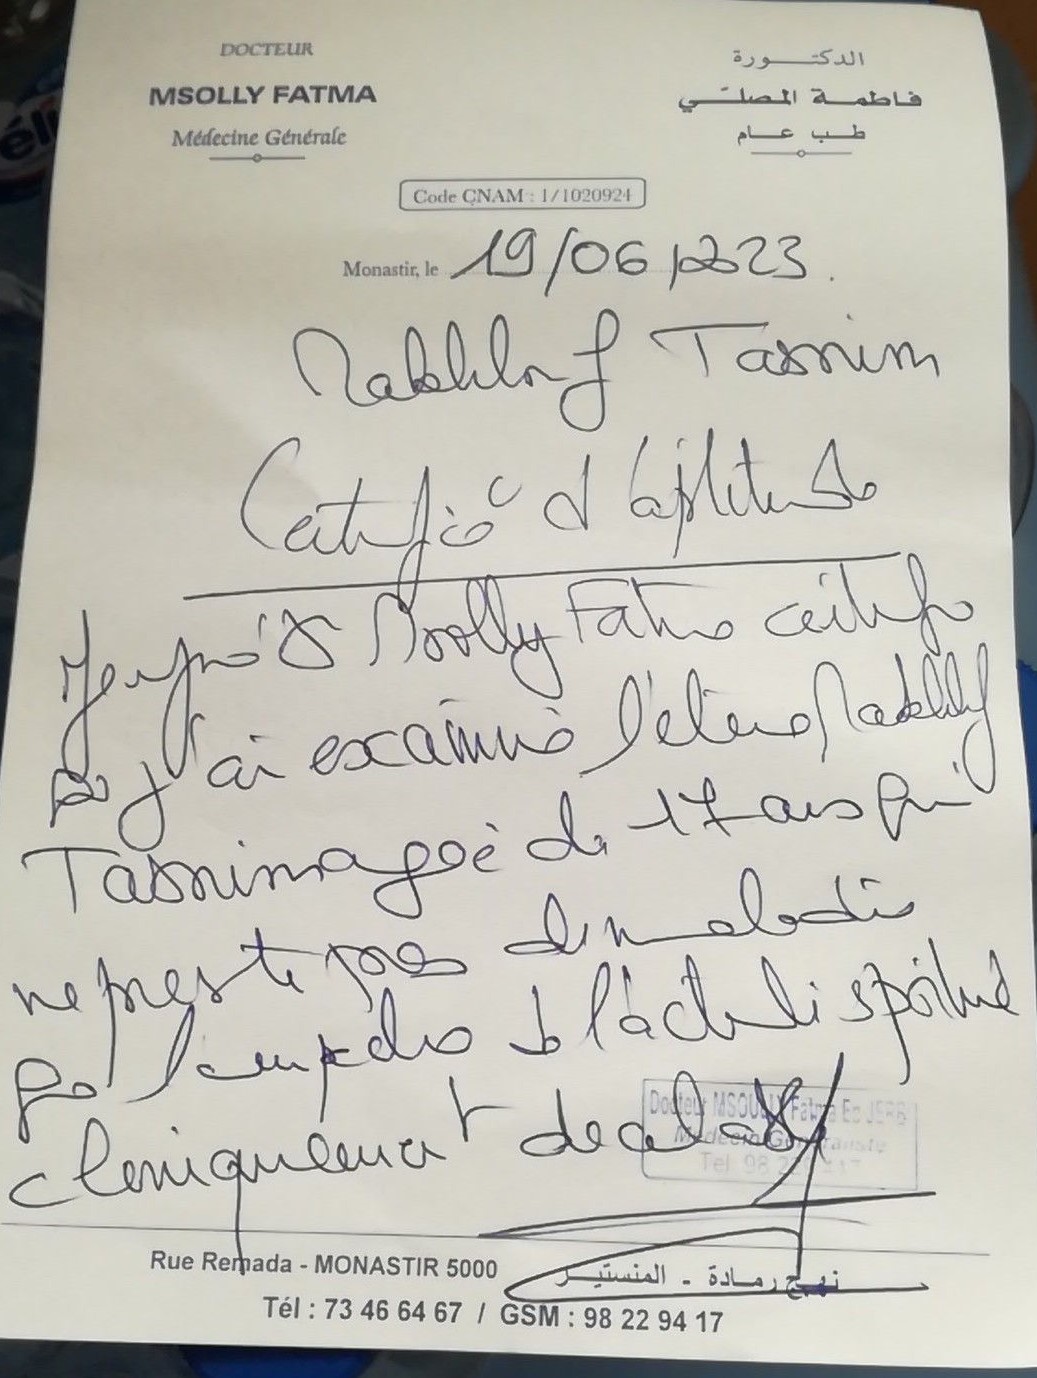 DOCTEUR
MSOLLY FATMA
Médecine Générale
الدكتورة
فاطمة المصلي
طب عام
Code CNAM : 1/1020924
Monastir, le 19/06/2023.
Makhlouf Tasnim
Certificat d'aptitude
Je soussigné Dr Msolly Fatma certifie
que j'ai examiné l'élève Makhlouf
Tasnim agée de 17 ans qui
ne présente pas de maladie
qui l'empêche de l'activité sportive
cliniquement décelable
Docteur MSOLLY Fatma Ep JERB
Médecin Généraliste
Tel 98 229 417
Rue Remada - MONASTIR 5000
نهج رمادة - المنستير
Tél : 73 46 64 67 / GSM : 98 22 94 17